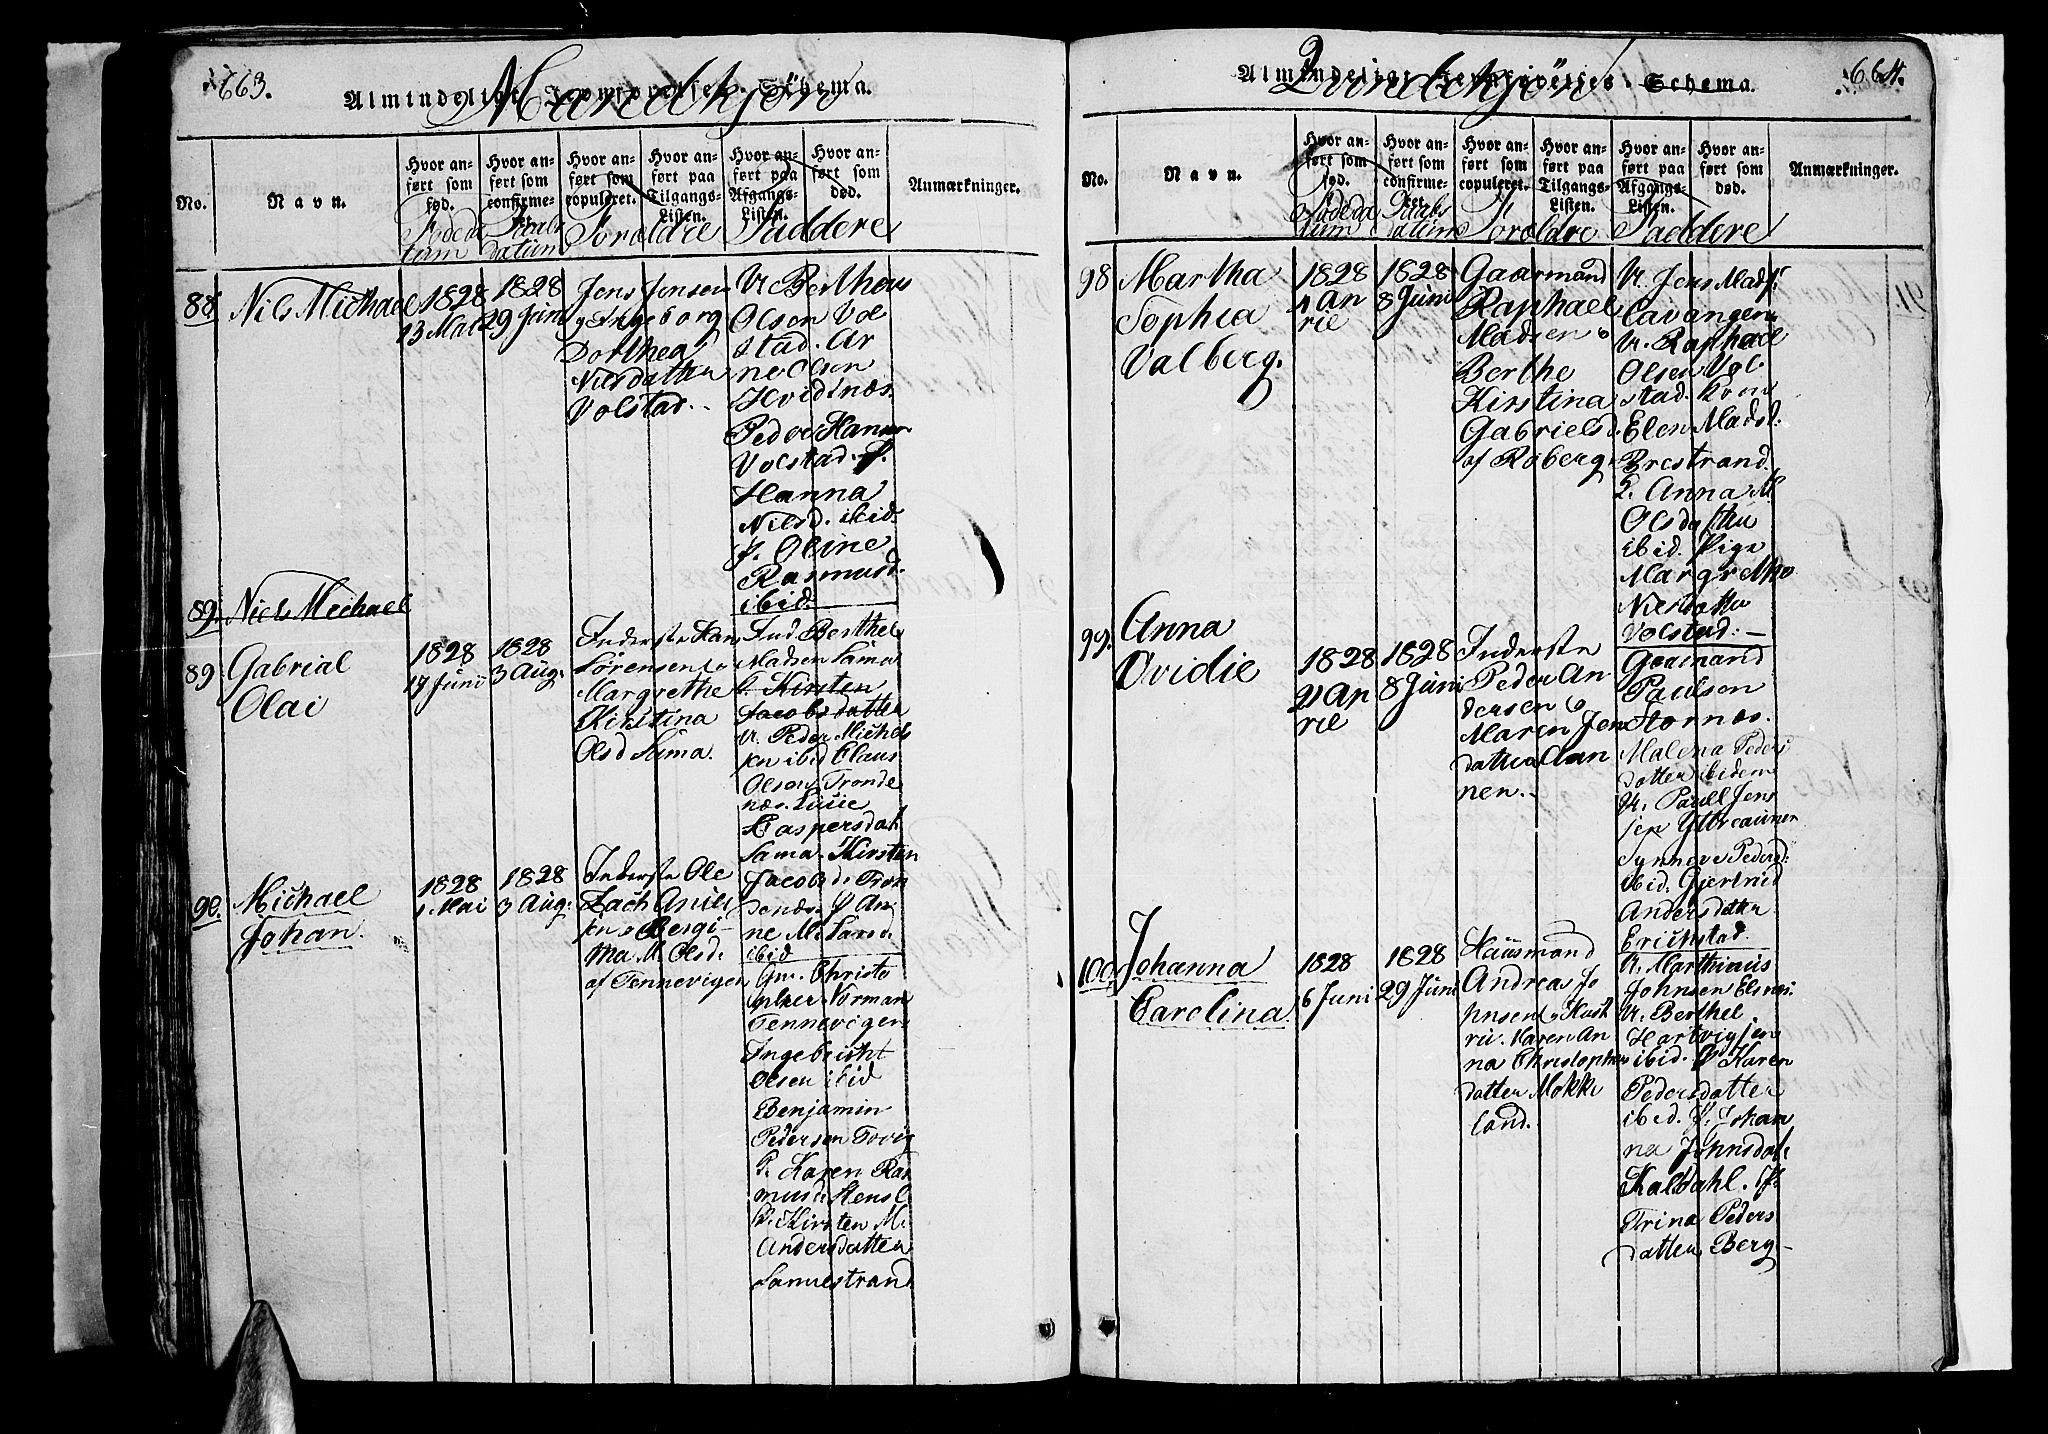 663.
Almindeligt Jevnførelses-Schema.
Mandkjøn
No.
Navn.
Hvor anført som fød.
Hvor anført som confirmeret
Hvor anført som copuleret.
Hvor anført paa Tilgangs-Listen.
Hvor anført paa Afgangs-Listen.
Hvor anført som død.
Anmærkninger.
Fødeda
tum
Daabs
datum
Foreldre
Faddere
88
Nils Michael
1828
13 Mai
1828
29 Juni
Jens Jensen
og Ingeborg
Dorthea
Nilsdatter
Volstad.
U. Bertheus
Olsen Vol
stad. Ar
ne Olsen
Hvidnæs.
Peder Hansen
Volstad. P.
Hanna
Nilsd. ibid.
P. Oline
Rasmusd.
ibid.
89.
Niels Michael
89
Gabrial
Olai
1828
17 Junii
1828
3 Aug.
Inderste Han
Sørensen &
Margrethe
Kirstina
Olsd Sama.
Ind. Berthel
Madsen Sama
Kirsten
Jacobsdatter
U. Peder Michels
sen ibid Claus
Olsen Tronde
næs. Lusie
Caspersdat
Sama. Kirsten
Jacobsd. Tron
denæs. P An
ne M. Sama.
ibid
90.
Michael
Johan.
1828
1 Mai
1828
3 Aug:
Inderste Ole
Zach Ariel
sen & Bergi-
tha M. Olsd.
af Tennevigen
Gm. Christo
pher Norman
Tennevigen
Ingebricht
Olsen ibid
Benjamin
Pedersen Tovig
P. Karen Ras
musd:
P. Kirsten M.
Andersdatter
Sanuestrand
664.
Almindeligt Jevnførelses-Schema.
Qvindekjøn
No.
Navn.
Hvor anført som fød.
Hvor anført som confirmeret
Hvor anført som copuleret.
Hvor anført paa Tilgangs-Listen.
Hvor anført paa Afgangs-Listen.
Hvor anført som død.
Anmærkninger.
Fødeda
tum
Daabs
datum
Foroldre
Faddere
98
Martha
Sophia
Valberg.
1828
4 Ap
rie
1828
8 Juni
Gaarmand
Raphael
Madsen &
Berthe
Kirstina
Gabrielsd.
af Roberg.
U. Jens Mads:
Cavangen
U. Raphael
Olsen Vol
stad. Kone
Elen Madsd:
Brestrand.
P. Anna M.
Olsdatter
ibid. Pige
Margrethe
Nilsdatter
Volstad:—
99.
Anna
Ovidie
1828
21 Ap
rie
1828
8 Juni
Inderste
Peder An
dersen &
Maren Jens
datter Aan
nen.
Gaamand
Paulsen
Stornæs.
Malena Peders
datter ibidem
U. Paull Jens
sen Yttreaunen
Synneve Pedersd:
ibid. Gjertrud
Andersdatter
Erichstad.
100.
Johanna
Carolina.
1828
6 Juni
1828
29 Juni
Huusmand
Andreas Jo
hnsen & Hust
rii. Karen An
na Christophers
datter Mokke
land.
U. Marthinus
Johnsen Elsnæs.
U. Berthel
Hartvigsen
ibid. P Karen
Pedersdatter
ibid. P. Johan
na Johnsdat:
Kaldahl. P.
Trina Peders
datter Berg—